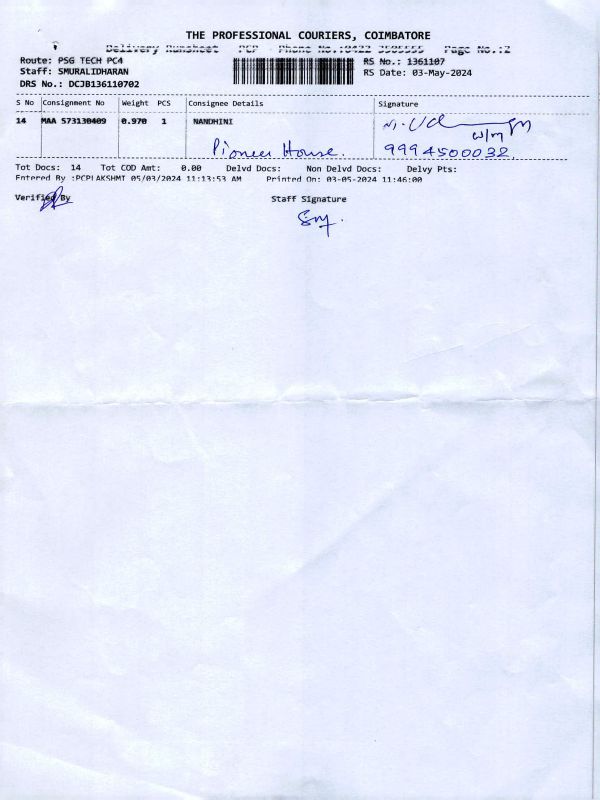 THE PROFESSIONAL COURIERS, COIMBATORE
Delivery Runsheet PCP - Phone No.:0422 3505555 Page No.:2
Route: PSG TECH PC4
Staff: SMURALIDHARAN
DRS No.: DCJB136110702
RS No.: 1361107
RS Date: 03-May-2024
S No Consignment No Weight PCS Consignee Details Signature
14 MAA 573130409 0.970 1 NANDHINI
W/m
Pioneer House. 9994500032.
Tot Docs: 14 Tot COD Amt: 0.00 Delvd Docs: Non Delvd Docs: Delvy Pts:
Entered By :PCPLAKSHMI 05/03/2024 11:13:53 AM Printed On: 03-05-2024 11:46:00
Verified By Staff Signature